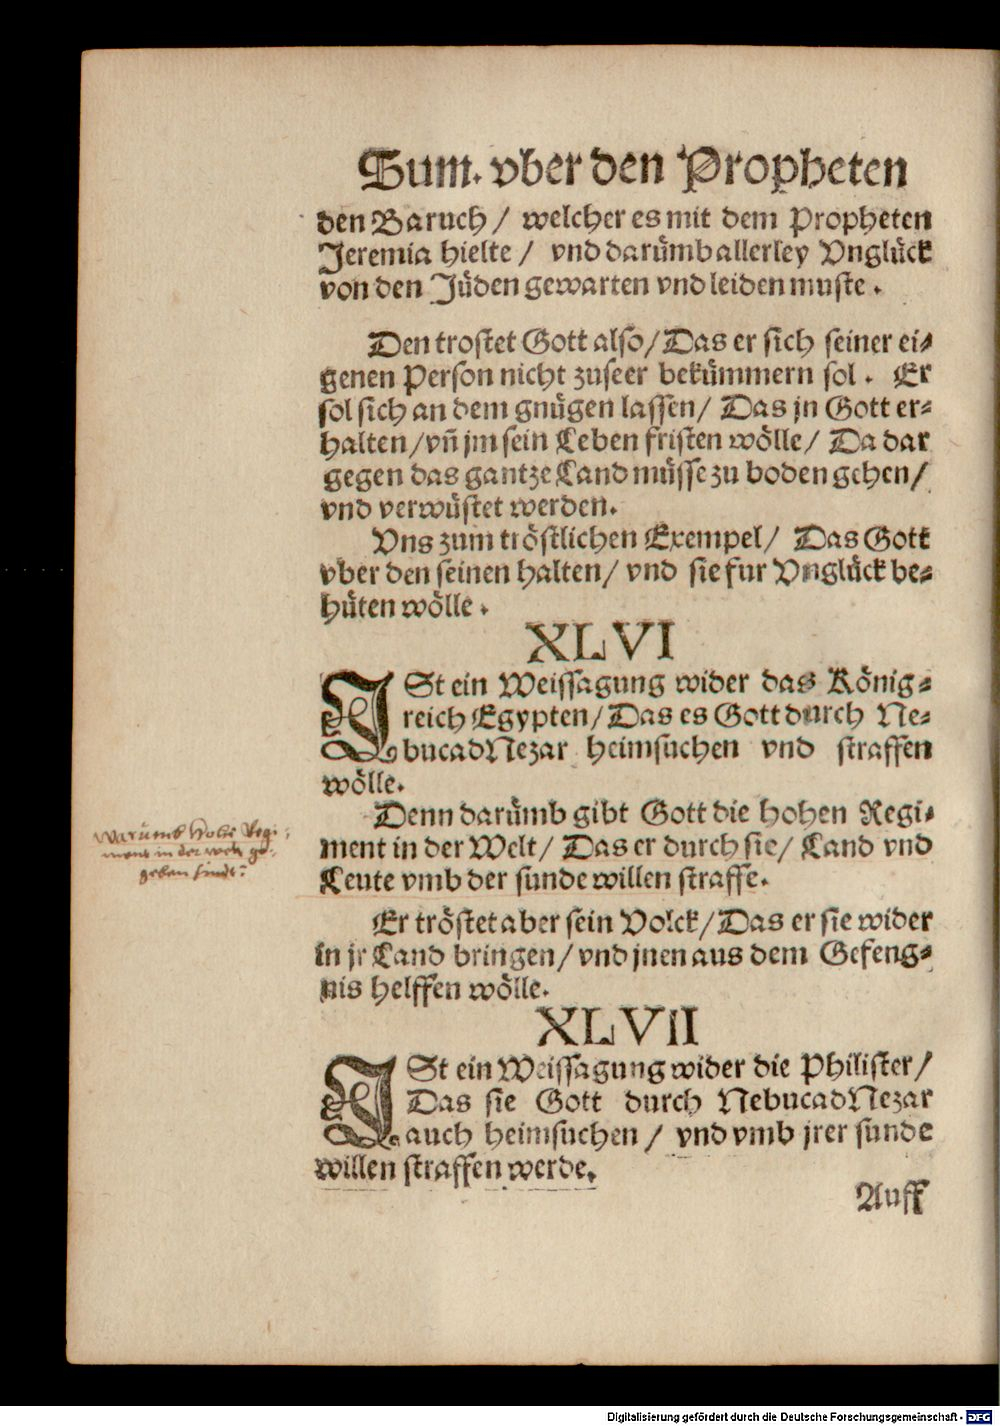 Sum. vber den Propheten
den Baruch / welcher es mit dem Propheten
Jeremia hielte / vnd darümb allerley Vnglück
von den Jüden gewarten vnd leiden muste.
Den trostet Gott also / Das er sich seiner ei-
genen Person nicht zuseer bekümmern sol. Er
sol sich an dem gnügen lassen / Das jn Gott er-
halten / vñ jm sein Leben fristen wölle / Da dar
gegen das gantze Land müsse zu boden gehen /
vnd verwüstet werden.
Vns zum tröstlichen Exempel / Das Gott
vber den seinen halten / vnd sie fur Vnglück be-
hüten wölle.
XLVI
ISt ein Weissagung wider das König-
reich Egypten / Das es Gott durch Ne-
bucadNezar heimsuchen vnd straffen
wölle.
Denn darümb gibt Gott die hohen Regi-
ment in der Welt / Das er durch sie / Land vnd
Leute vmb der sunde willen straffe.
Warumb hohe Regi-
ment in der welt ge-
geben sindt?
Er tröstet aber sein Volck / Das er sie wider
in jr Land bringen / vnd jnen aus dem Gefeng-
nis helffen wölle.
XLVII
ISt ein Weissagung wider die Philister /
Das sie Gott durch NebucadNezar
auch heimsuchen / vnd vmb jrer sunde
willen straffen werde.
Auff
Digitalisierung gefördert durch die Deutsche Forschungsgemeinschaft - DFG